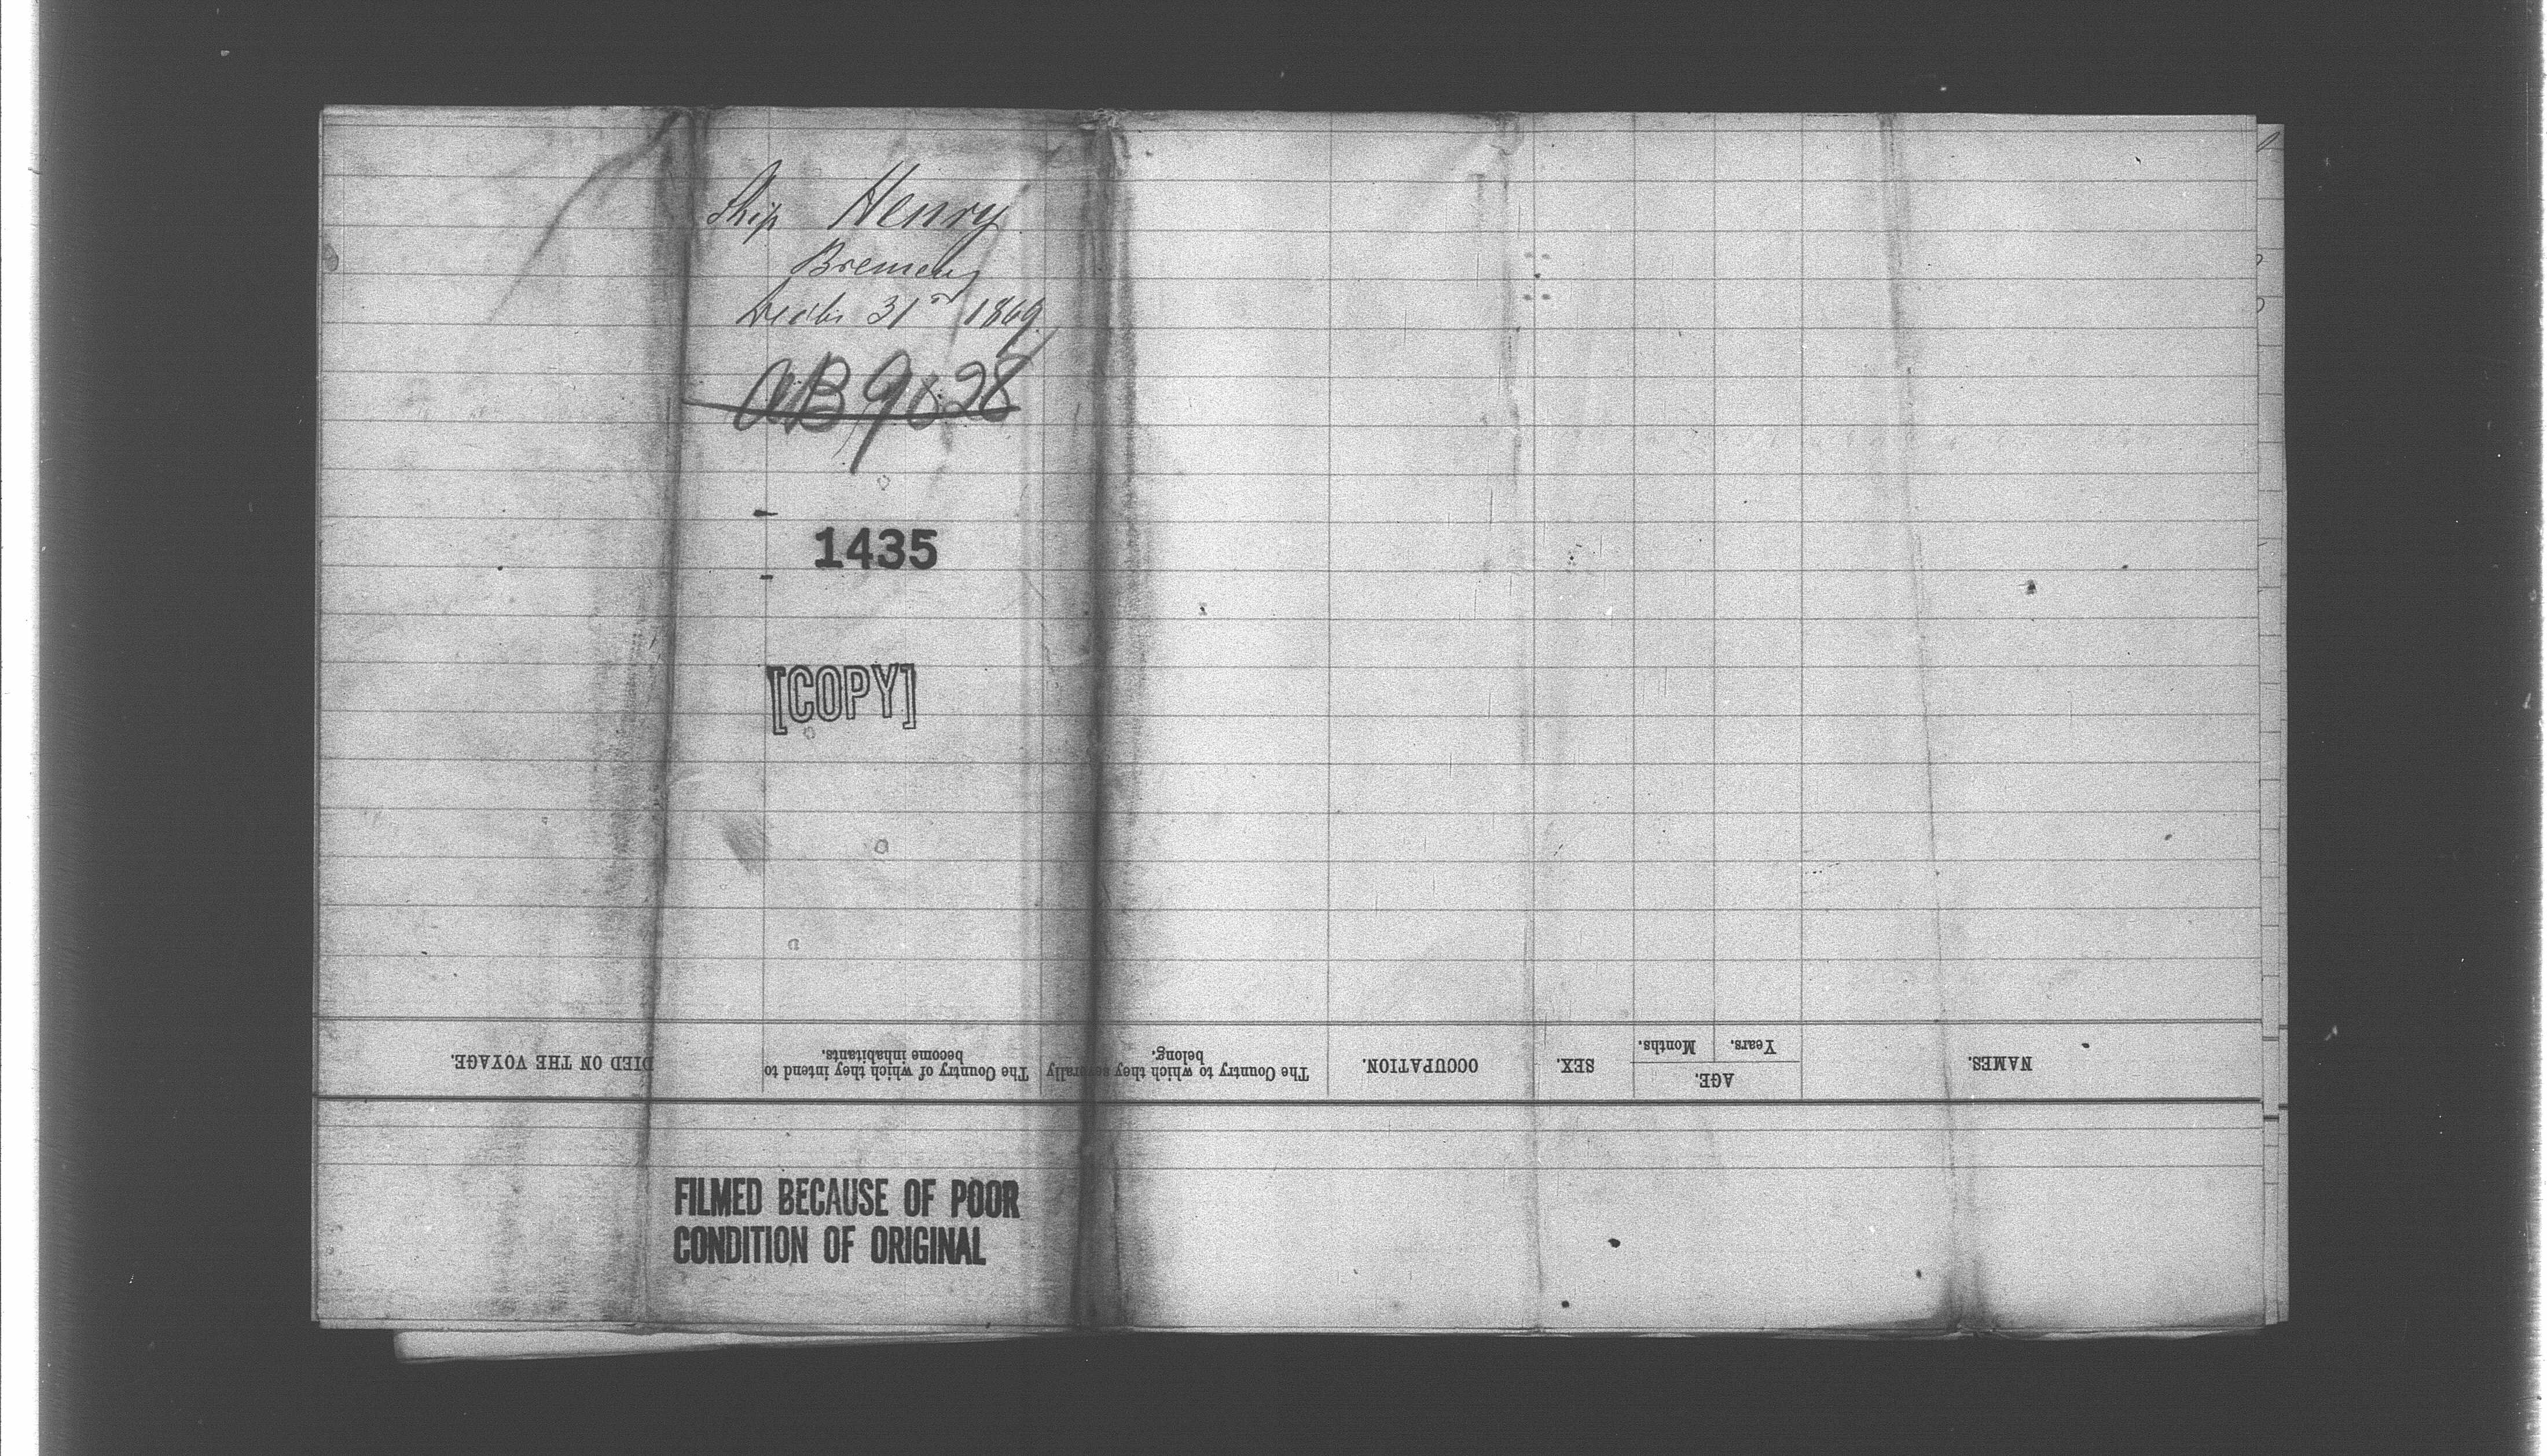 Ship Henry
Bremen
Decbr 31st 1869.
AB 9828
1435
[COPY]
DIED ON THE VOYAGE.
The Country of which they intend to
become inhabitants.
The Country to which they severally
belong.
OCCUPATION.
SEX.
AGE.
Months.
Years.
NAMES.
FILMED BECAUSE OF POOR
CONDITION OF ORIGINAL